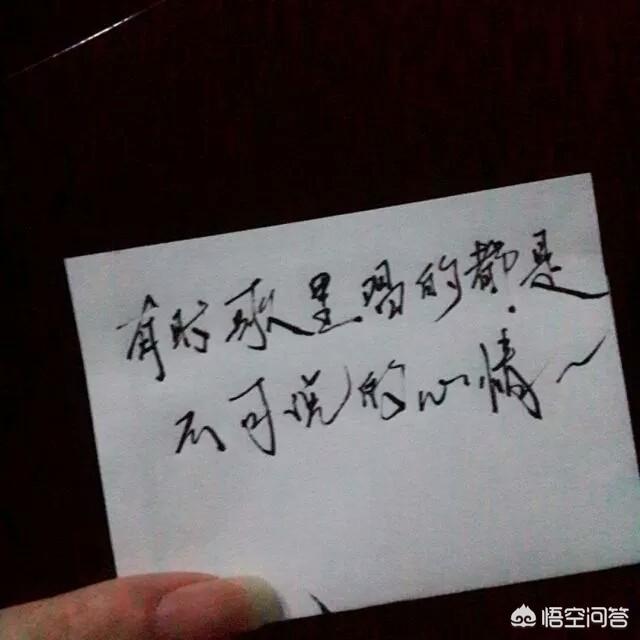 有时歌里唱的都是
不可说的心情~
悟空问答